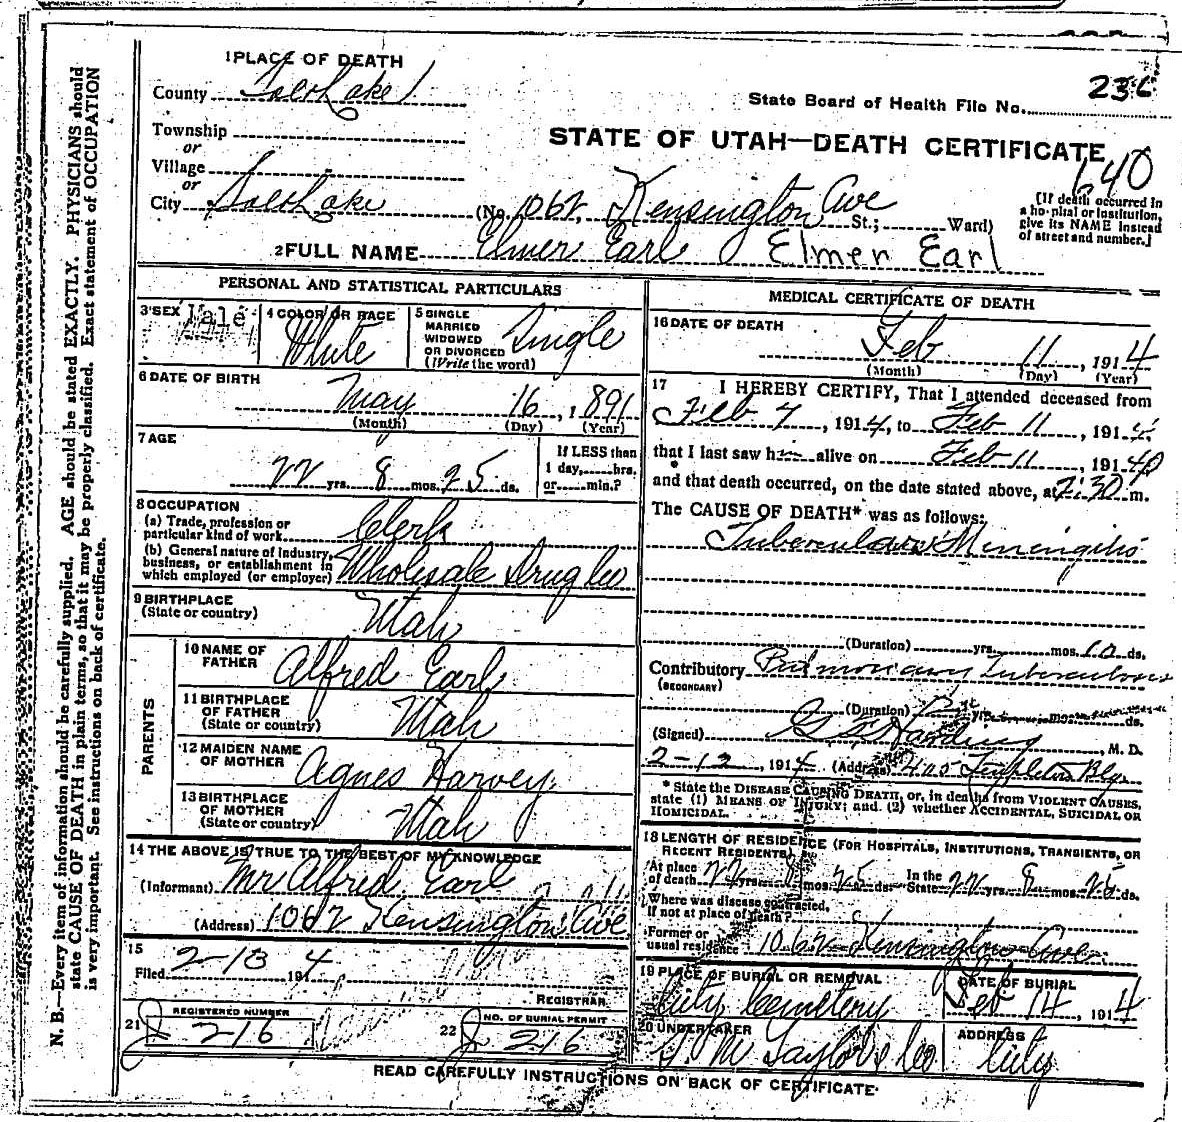 1 PLACE OF DEATH
County Salt Lake
State Board of Health File No.
Township
or
Village
or
City Salt Lake
STATE OF UTAH—DEATH CERTIFICATE
640
(No. 1062 Kensington Ave St.; Ward)
[If death occurred in
a hospital or institution,
give its NAME instead
of street and number.]
2 FULL NAME Elmer Earl Elmer Earl
PERSONAL AND STATISTICAL PARTICULARS
3 SEX Male
4 COLOR OR RACE White
5 SINGLE
MARRIED
WIDOWED
OR DIVORCED
(Write the word)
Single
6 DATE OF BIRTH
May 16, 1891
(Month) (Day) (Year)
7 AGE
22 yrs. 8 mos. 25 ds.
If LESS than
1 day, hrs.
or min.?
8 OCCUPATION
(a) Trade, profession or
particular kind of work Clerk
(b) General nature of Industry,
business, or establishment in
which employed (or employer) Wholesale Drug Co
9 BIRTHPLACE
(State or country) Utah
PARENTS
10 NAME OF
FATHER Alfred Earl
11 BIRTHPLACE
OF FATHER
(State or country) Utah
12 MAIDEN NAME
OF MOTHER Agnes Harvey
13 BIRTHPLACE
OF MOTHER
(State or country) Utah
14 THE ABOVE IS TRUE TO THE BEST OF MY KNOWLEDGE
(Informant) Mr Alfred Earl
(Address) 1062 Kensington Ave
15
Filed 2-13 1914
REGISTRAR
21 REGISTERED NUMBER
216
22 NO. OF BURIAL PERMIT
216
MEDICAL CERTIFICATE OF DEATH
16 DATE OF DEATH
Feb 11, 1914
(Month) (Day) (Year)
17 I HEREBY CERTIFY, That I attended deceased from
Feb 7, 1914, to Feb 11, 1914
that I last saw him alive on Feb 11, 1914
and that death occurred, on the date stated above, at 2:30 m.
The CAUSE OF DEATH* was as follows:
Tubercular Meningitis
(Duration) yrs. mos. 10 ds.
Contributory Pulmonary Tuberculosis
(SECONDARY)
(Duration) yrs. mos. ds.
(Signed) Harding, M. D.
2-12, 1914 (Address) 405 Templeton Blg
* State the DISEASE CAUSING DEATH, or, in deaths from VIOLENT CAUSES,
state (1) MEANS OF INJURY; and (2) whether ACCIDENTAL, SUICIDAL OR
HOMICIDAL.
18 LENGTH OF RESIDENCE (FOR HOSPITALS, INSTITUTIONS, TRANSIENTS, OR
RECENT RESIDENTS)
At place
of death 22 yrs. 8 mos. 25 ds. In the State 22 yrs. 8 mos. 25 ds.
Where was disease contracted,
if not at place of death?
Former or
usual residence 1062 Kensington Ave
19 PLACE OF BURIAL OR REMOVAL
City Cemetery
DATE OF BURIAL
Feb 14, 1914
20 UNDERTAKER
S. M. Taylor & Co
ADDRESS
City
READ CAREFULLY INSTRUCTIONS ON BACK OF CERTIFICATE.
N. B.—Every item of information should be carefully supplied. AGE should be stated EXACTLY. PHYSICIANS should
state CAUSE OF DEATH in plain terms, so that it may be properly classified. Exact statement of OCCUPATION
is very important. See instructions on back of certificate.